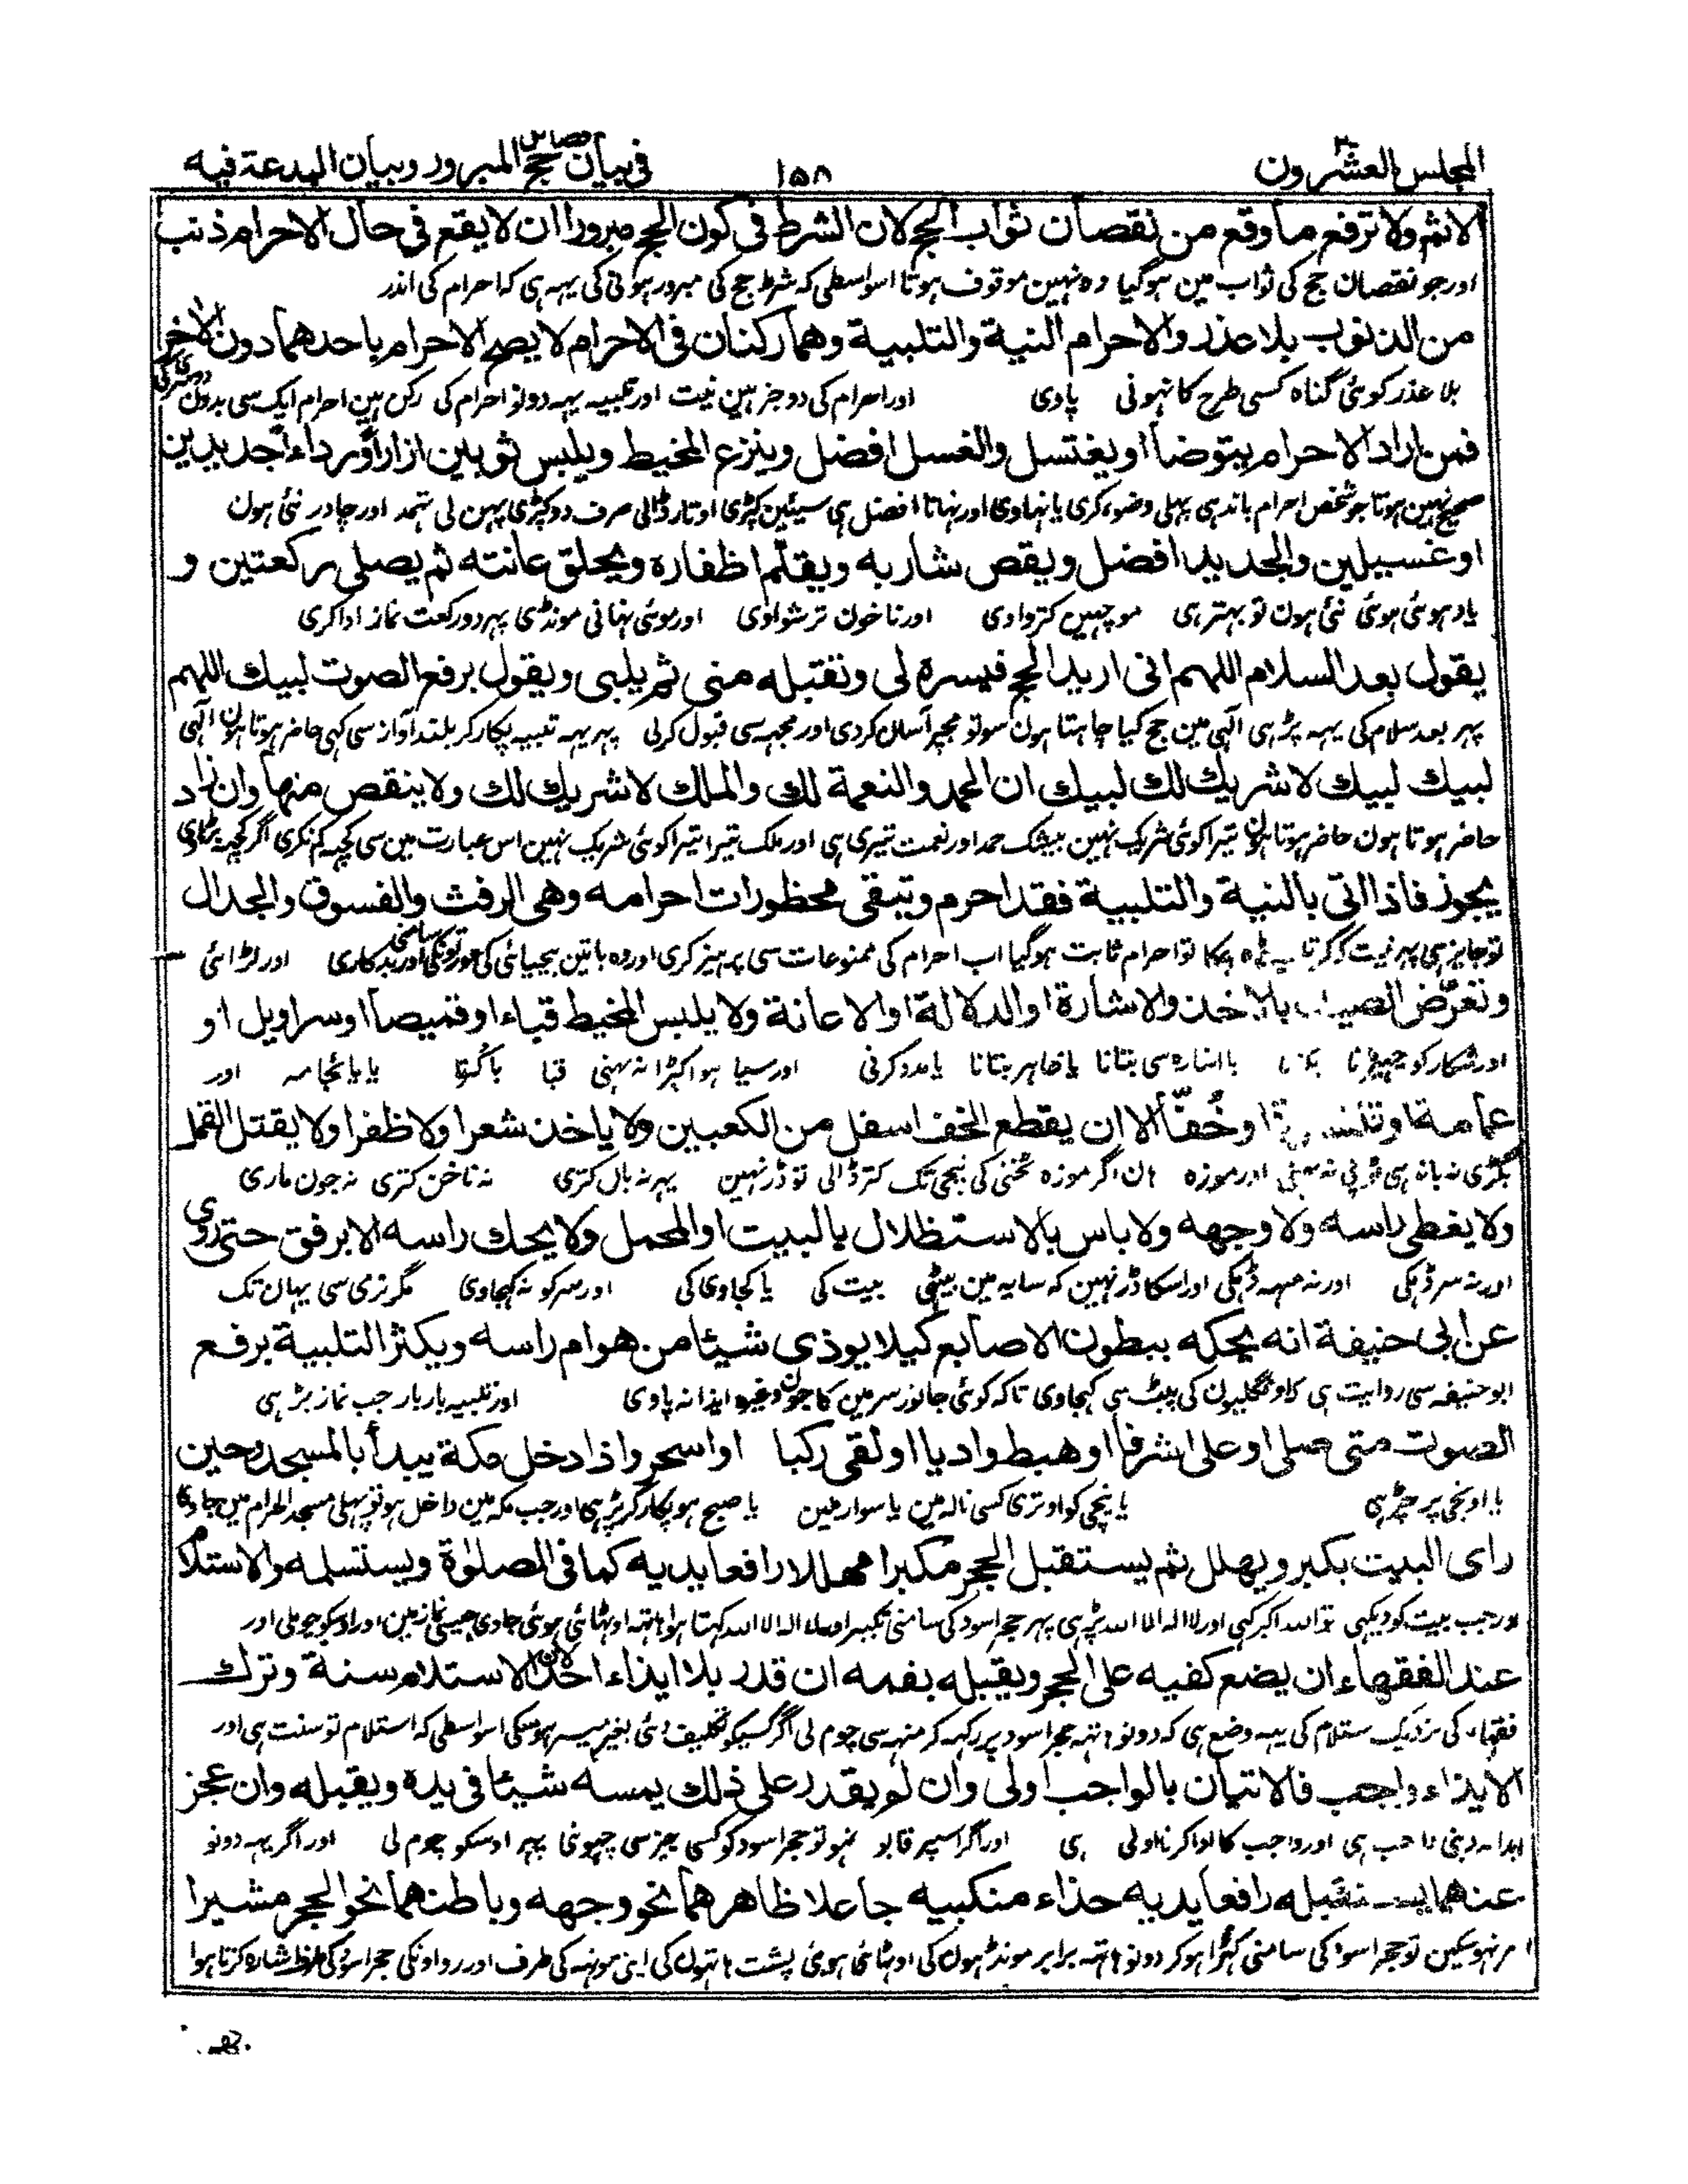 المجلس العشرون ۱۵۸ فی بیان فضائل حج المبرور وبیان البدعة فیه
لاثم ولا ترفع ما وقع من نقصان ثواب الحج لان الشرط فی کون الحج مبرورا ان لا یقع فی حال الاحرام ذنب
اور جو نقصان حج کی ثواب مین ہوگیا وہ نہین موقوف ہوتا اسواسطی کہ شرط حج کی مبرور ہونی کی یہہ ہی کہ احرام کی اندر
من الذنوب بلا عذر والاحرام النیة والتلبیة وهما رکنان فی الاحرام لا یصح الاحرام باحدهما دون الاخر
بلا عذر کوئی گناہ کسی طرح کا نہونی پاوی اور احرام کی دو جز ہین نیت اور تلبیہ یہہ دونو احرام کی رکن ہین احرام ایک سی بدون دوسری کی
فمن اراد الاحرام یتوضأ او یغتسل والغسل افضل وینزع المخیط ویلبس ثوبین ازارا ورداء جدیدین
صحیح نہین ہوتا جو شخص احرام باندہی پہلی وضو کری یا نہاوی اور نہانا افضل ہی سیئین کپڑی اوتار ڈالی صرف دو کپڑی پہن لی تہمد اور چادر نئی ہون
او غسیلین والجدید افضل ویقص شاربه ویقلم اظفاره ویحلق عانته ثم یصلی رکعتین و
یا دہوئی ہوئی نئی ہون تو بہتر ہی موچہین کتروا دی اور ناخون ترشوا وی اور موئی نہانی مونڈی پہر دو رکعت نماز ادا کری
یقول بعد السلام اللهم انی ارید الحج فیسره لی وتقبله منی ثم یلبی ویقول برفع الصوت لبیك اللهم
پہر بعد سلام کی یہہ پڑہی آلہی مین حج کیا چاہتا ہون سو تو مجپر آسان کردی اور مجہہ سی قبول کرلی پہر یہہ تلبیہ پکار کر بلند آواز سی کہی حاضر ہوتا ہون آلہی
لبیك لبیك لا شریك لك لبیك ان الحمد والنعمة لك والملك لا شریك لك ولا ینقص منها وان زاد
حاضر ہوتا ہون حاضر ہوتا ہون تیرا کوئی شریک نہین بیشک حمد اور نعمت تیری ہی اور ملک تیرا تیرا کوئی شریک نہین اس عبارت مین سی کچہہ کم نکری اگر کچہہ بڑہاوی
یجوز فاذا اتی بالنیة والتلبیة فقد احرم ویتقی محظورات احرامه وهی الرفث والفسوق والجدال
تو جایز ہی پہر نیت کر کر تو احرام ثابت ہوگیا اب احرام کی ممنوعات سی پرہیز کری اور وہ باتین بیحیائی کی عورتونکی سامنی اور بدکاری اور لڑائی
وتعرض الصید بالاخذ والاشارة او الدلالة او الاعانة ولا یلبس المخیط قباء او قمیصا او سراویل او
اور شکار کو چہیڑنا یا اشارہ سی بتانا یا ظاہر بتانا یا مدد کرنی اور سیا ہوا کپڑا نہ پہنی قبا یا کُرتا یا پائجامہ اور
عمامة او خفّا الا ان یقطع الخف اسفل من الکعبین ولا یاخذ شعرا ولا ظفرا ولا یقتل القمل
پگڑی نہ باندہی ٹوپی نہ پہنی اور موزہ ہان اگر موزہ ٹخنی کی نیچی تک کتر ڈالی تو ڈر نہین پہر نہ بال کتری نہ ناخن کتری نہ جون ماری
ولا یغطی راسه ولا وجهه ولا باس بالاستظلال بالبیت او المحمل ولا یحك راسه الا برفق حتی روی
اور نہ سر ڈہکی اور نہ منہہ ڈہکی اور اسکا ڈر نہین کہ سایہ مین بیٹہی بیت کی یا کجاوی کی اور سر کو نہ کہجاوی مگر نرمی سی یہان تک
عن ابی حنیفة انه یحکه ببطون الاصابع کیلا یوذی شیئا من هوام راسه ویکثر التلبیة برفع
ابو حنیفہ سی روایت ہی کہ اونگلیون کی پیٹ سی کہجاوی تاکہ کوئی جانور سر مین کا جون وغیرہ ایذا نہ پاوی اور تلبیہ بار بار جب نماز پڑہی
الصوت متی صلی او علی شرفا او هبط وادیا او لقی رکبا او اسحر واذا دخل مکة یبدأ بالمسجد وحین
یا اونچی پر چڑہی یا نیچی کو اوتری کسی نالہ مین یا سوار ملین یا صبح ہو پکار کر پڑہی اور جب مکہ مین داخل ہو تو پہلی مسجد الحرام مین جاویگا
رای البیت یکبر ویهلل ثم یستقبل الحجر مکبرا مهللا رافعا یدیه کما فی الصلوٰة ویستلمه والاستلام
اور جب بیت کو دیکہی تو اللہ اکبر کہی اور لا الہ الا اللہ پڑہی پہر حجر اسود کی سامنی تکبیر اور لا الہ الا اللہ کہتا ہوا ہاتہہ اوٹہائی ہوئی جاوی جیسی نماز مین اور اوسکو چوملی اور
عند الفقهاء ان یضع کفیه علی الحجر ویقبله بفمه ان قدر بلا ایذاء احد لان الاستلام سنة وترك
فقہاء کی نزدیک ستلام کی یہہ وضع ہی کہ دونو ہاتہہ حجر اسود پر رکہہ کر منہہ سی چوم لی اگر کسیکو تکلیف دئی بغیر میسر ہوسکی اسواسطی کہ استلام تو سنت ہی اور
الایذاء واجب فالاتیان بالواجب اولی وان لم یقدر علی ذلك یمسه شیئا فی یده ویقبله وان عجز
ایذا نہ دینی واجب ہی اور واجب کا ادا کرنا اولی ہی اور اگر اسپر قابو نہو تو حجر اسود کو کسی چیز سی چہونی پہر اوسکو چوم لی اور اگر یہہ دونو
عنهما یستقبله رافعا یدیه حذاء منکبیه جاعلا ظاهرهما نحو وجهه وباطنهما نحو الحجر مشیرا
نہوسکین تو حجر اسود کی سامنی کہڑا ہوکر دونو ہاتہہ برابر مونڈہون کی اوٹہائی ہوئی پشت ہاتہون کی اپنی مونہہ کی طرف اور حجر اسود کی طرف اشارہ کرتا ہوا